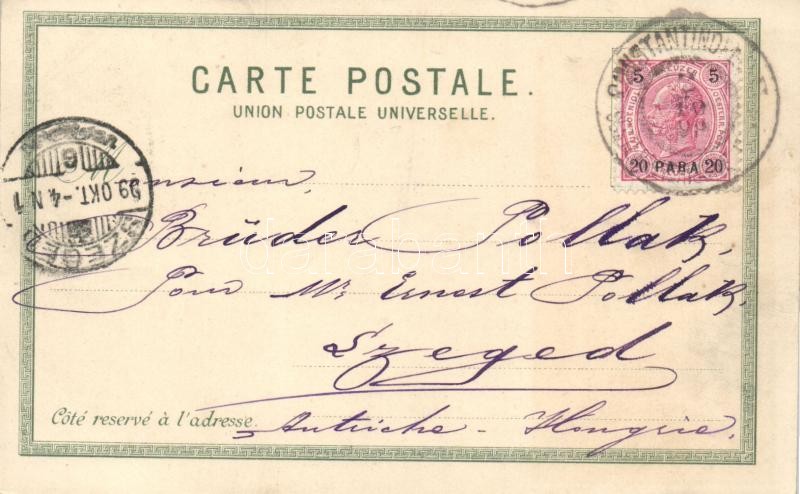 CARTE POSTALE.
UNION POSTALE UNIVERSELLE.
5 5
20 PARA 20
CONSTANTINO
99 OKT. -4. N 1
SZEGED
Monsieur,
Brüder Pollak,
Pour Mr Ernest Pollak,
Szeged
Autriche - Hongrie.
Côté reservé à l'adresse.
darabanth